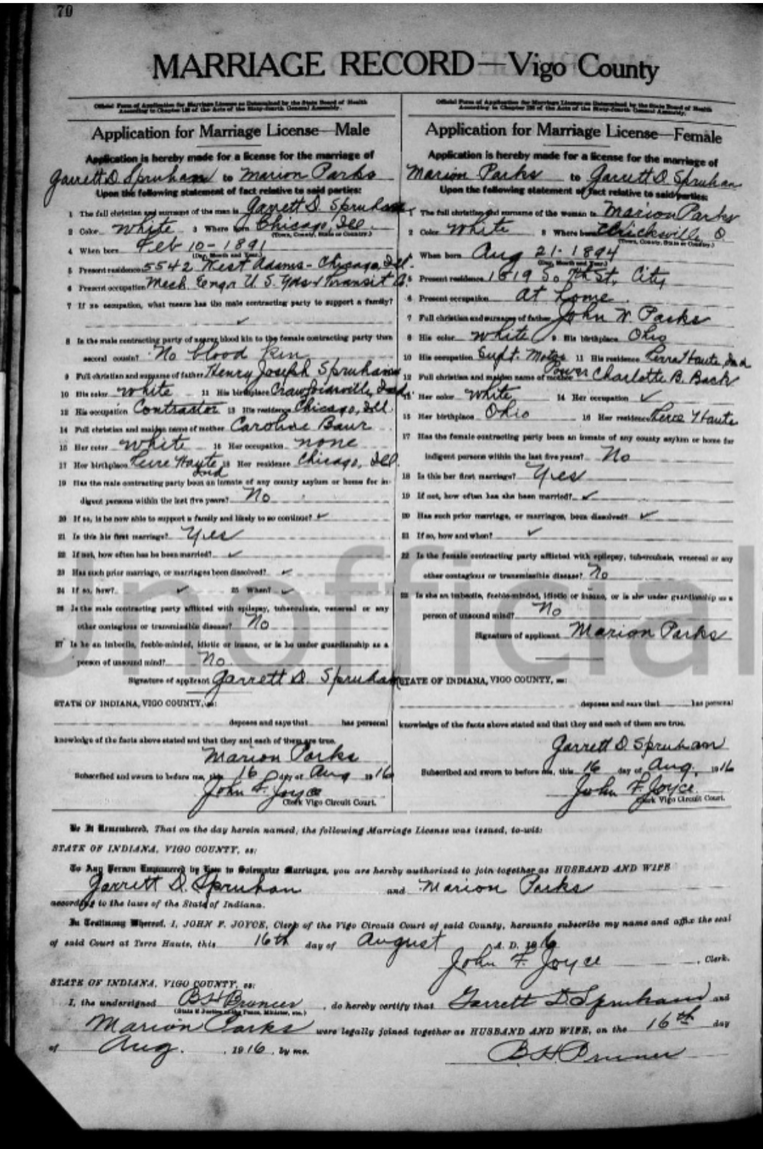 70
MARRIAGE RECORD—Vigo County
Official Form of Application for Marriage License as Determined by the State Board of Health
According to Chapter of the Acts of the Sixty-Fourth General Assembly.
Application for Marriage License—Male
Application is hereby made for a license for the marriage of
Garrett D. Spruhan to Marion Parks
Upon the following statement of fact relative to said parties:
1 The full christian and surname of the man is Garrett D. Spruhan
2 Color White 3 Where born Chicago, Ill.
(Town, County, State or Country.)
4 When born Feb 10 - 1891
(Day, Month and Year.)
5 Present residence 5542 West Adams - Chicago, Ill.
6 Present occupation Mech. Engr U.S. Transit
7 If no occupation, what means has the male contracting party to support a family?
✓
8 Is the male contracting party of nearer blood kin to the female contracting party than
second cousin? No blood kin
9 Full christian and surname of father Henry Joseph Spruhan
10 His color White 11 His birthplace Crawfordsville, Ind
12 His occupation Contractor 13 His residence Chicago, Ill.
14 Full christian and maiden name of mother Caroline Baur
15 Her color White 16 Her occupation none
17 Her birthplace Terre Haute Ind 18 Her residence Chicago, Ill.
19 Has the male contracting party been an inmate of any county asylum or home for in-
digent persons within the last five years? No
20 If so, is he now able to support a family and likely to so continue? ✓
21 Is this his first marriage? Yes
22 If not, how often has he been married? ✓
23 Has such prior marriage, or marriages been dissolved? ✓
24 If so, how? ✓ 25 When? ✓
26 Is the male contracting party afflicted with epilepsy, tuberculosis, venereal or any
other contagious or transmissible disease? No
27 Is he an imbecile, feeble-minded, idiotic or insane, or is he under guardianship as a
person of unsound mind? No
Signature of applicant Garrett D. Spruhan
STATE OF INDIANA, VIGO COUNTY, ss:
deposes and says that has personal
knowledge of the facts above stated and that they and each of them are true.
Marion Parks
Subscribed and sworn to before me, this 16 day of Aug 1916
John F. Joyce
Clerk Vigo Circuit Court.
Official Form of Application for Marriage License as Determined by the State Board of Health
According to Chapter of the Acts of the Sixty-Fourth General Assembly.
Application for Marriage License—Female
Application is hereby made for a license for the marriage of
Marion Parks to Garrett D. Spruhan
Upon the following statement of fact relative to said parties:
1 The full christian and surname of the woman is Marion Parks
2 Color White 3 Where born O
(Town, County, State or Country.)
When born Aug 21 - 1894
(Day, Month and Year.)
5 Present residence 1819 So. 7th St, City
6 Present occupation At home
7 Full christian and surname of father John W. Parks
8 His color White 9 His birthplace Ohio
10 His occupation Supt. Motive Power 11 His residence Terre Haute, Ind
12 Full christian and maiden name of mother Charlotte B. Back
13 Her color White 14 Her occupation ✓
15 Her birthplace Ohio 16 Her residence Terre Haute
17 Has the female contracting party been an inmate of any county asylum or home for
indigent persons within the last five years? No
18 Is this her first marriage? Yes
19 If not, how often has she been married? ✓
20 Has such prior marriage, or marriages, been dissolved? ✓
21 If so, how and when? ✓
22 Is the female contracting party afflicted with epilepsy, tuberculosis, venereal or any
other contagious or transmissible disease? No
23 Is she an imbecile, feeble-minded, idiotic or insane, or is she under guardianship as a
person of unsound mind? No
Signature of applicant Marion Parks
STATE OF INDIANA, VIGO COUNTY, ss:
deposes and says that has personal
knowledge of the facts above stated and that they and each of them are true.
Garrett D. Spruhan
Subscribed and sworn to before me, this 16 day of Aug, 1916
John F. Joyce
Clerk Vigo Circuit Court.
unofficial
Be It Remembered, That on the day herein named, the following Marriage License was issued, to-wit:
STATE OF INDIANA, VIGO COUNTY, ss:
To Any Person Empowered by Law to Solemnize Marriages, you are hereby authorized to join together as HUSBAND AND WIFE
Garrett D. Spruhan and Marion Parks
according to the laws of the State of Indiana.
In Testimony Whereof, I, JOHN F. JOYCE, Clerk of the Vigo Circuit Court of said County, hereunto subscribe my name and affix the seal
of said Court at Terre Haute, this 16th day of August A. D. 1916
John F. Joyce, Clerk.
STATE OF INDIANA, VIGO COUNTY, ss:
I, the undersigned B. H. Bruner, do hereby certify that Garrett D. Spruhan and
(State if Justice of the Peace, Minister, etc.)
Marion Parks were legally joined together as HUSBAND AND WIFE, on the 16th day
of Aug. , 1916, by me. B. H. Bruner